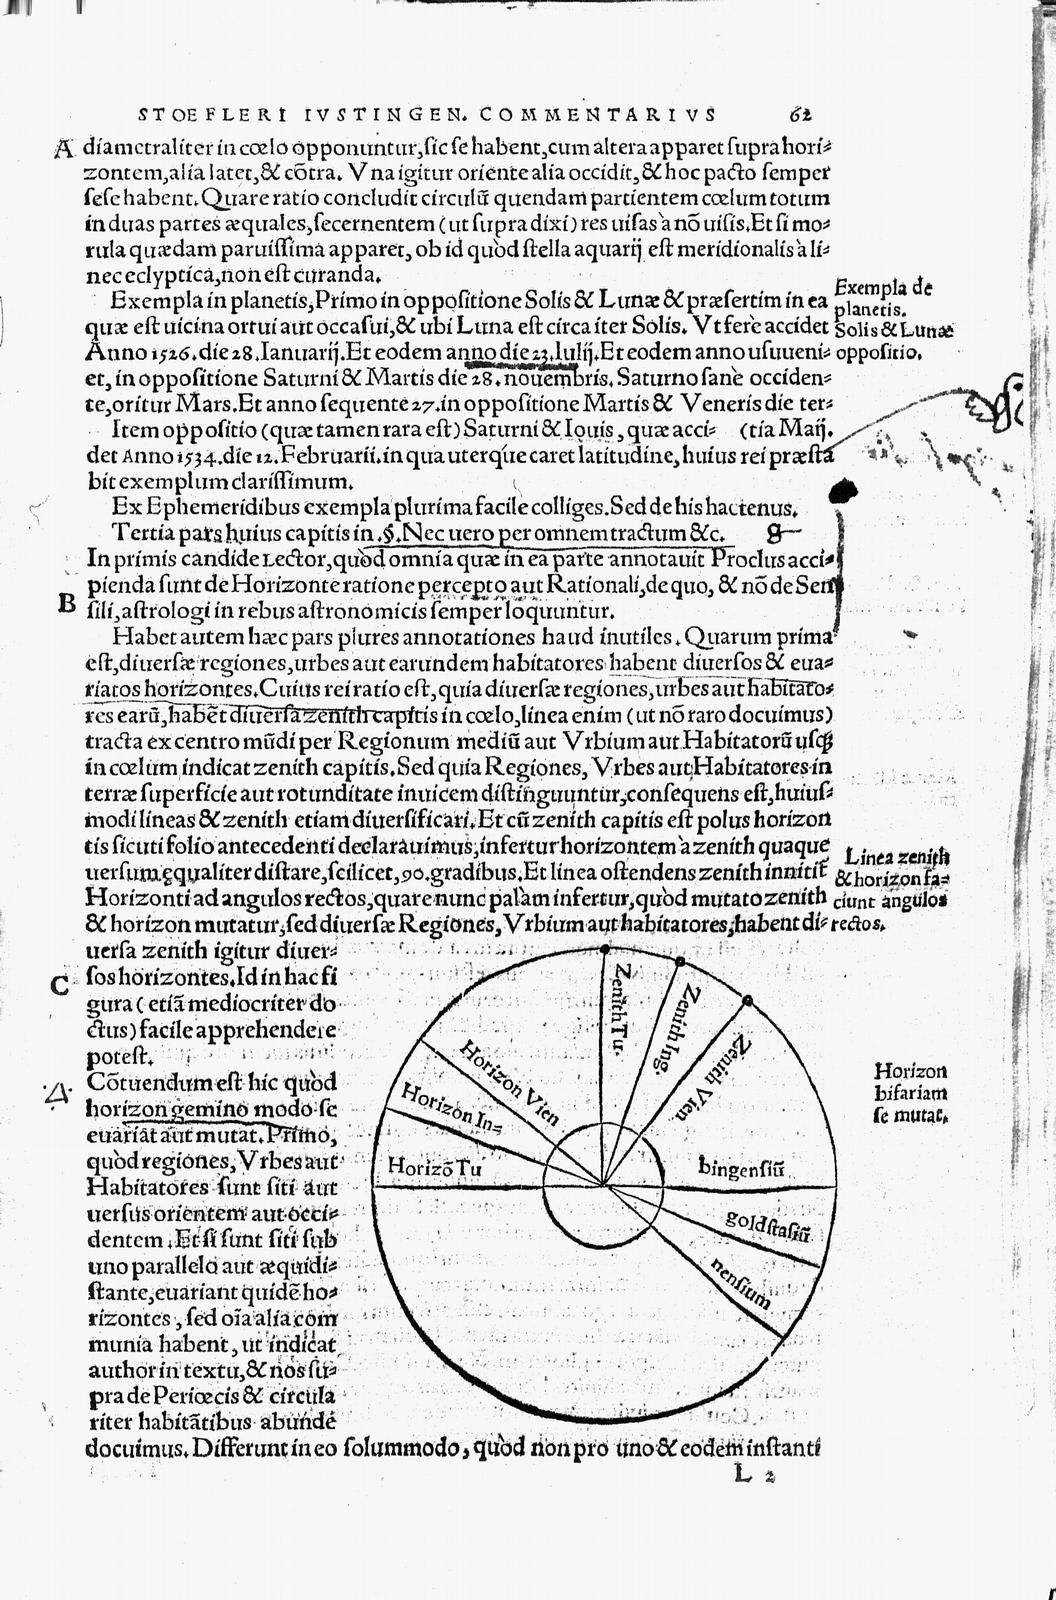 STOEFLERI IVSTINGEN. COMMENTARIVS 62
A diametraliter in cœlo opponuntur, sic se habent, cum altera apparet supra hori=
zontem, alia latet, & cõtra. Vna igitur oriente alia occidit, & hoc pacto semper
sese habent. Quare ratio concludit circulũ quendam partientem cœlum totum
in duas partes æquales, secernentem (ut supra dixi) res uisas à nõ uisis. Et si mo=
rula quædam paruissima apparet, ob id quòd stella aquarij est meridionalis à li=
nec eclyptica, non est curanda.
Exempla in planetis, Primo in oppositione Solis & Lunæ & præsertim in ea
quæ est uicina ortui aut occasui, & ubi Luna est circa iter Solis. Vt ferè accidet
Anno 1526. die 28. Ianuarij. Et eodem anno die 23. Iulij. Et eodem anno usuueni=
et, in oppositione Saturni & Martis die 28. nouembris. Saturno sanè occiden=
te, oritur Mars. Et anno sequente 27. in oppositione Martis & Veneris die ter=
Item oppositio (quæ tamen rara est) Saturni & Iouis, quæ acci= (tia Maij.
det Anno 1534. die 12. Februarii. in qua uterq́ue caret latitudine, huius rei præsta
bit exemplum clarissimum.
Exempla de
planetis.
Solis & Lunæ
oppositio.
Ex Ephemeridibus exempla plurima facile colliges. Sed de his hactenus.
Tertia pars huius capitis in .§. Nec uero per omnem tractum &c.
In primis candide Lector, quòd omnia quæ in ea parte annotauit Proclus acci=
pienda sunt de Horizonte ratione percepto aut Rationali, de quo, & nõ de Sen
B sili, astrologi in rebus astronomicis semper loquuntur.
Habet autem hæc pars plures annotationes haud inutiles. Quarum prima
est, diuersæ regiones, urbes aut earundem habitatores habent diuersos & eua=
riatos horizontes. Cuius rei ratio est, quia diuersæ regiones, urbes aut habitato=
res earũ, habẽt diuersa zenith capitis in cœlo, linea enim (ut nõ raro docuimus)
tracta ex centro mũdi per Regionum mediũ aut Vrbium aut Habitatorũ usq́
in cœlum indicat zenith capitis. Sed quia Regiones, Vrbes aut Habitatores in
terræ superficie aut rotunditate inuicem distinguuntur, consequens est, huius=
modi lineas & zenith etiam diuersificari. Et cũ zenith capitis est polus horizon
tis sicuti folio antecedenti declarauimus, infertur horizontem à zenith quaque
uersum ęqualiter distare, scilicet, 90. gradibus. Et linea ostendens zenith innitit̃
Horizonti ad angulos rectos, quare nunc palàm infertur, quòd mutato zenith
& horizon mutatur, sed diuersæ Regiones, Vrbium aut habitatores, habent di=
Linea zenith
& horizon fa=
ciunt angulos
rectos.
uersa zenith igitur diuer=
C sos horizontes. Id in hac fi
gura (etiã mediocriter do
ctus) facile apprehendere
potest.
Cõtuendum est hic quòd
horizon gemino modo se
euariat aut mutat. Primo,
quòd regiones, Vrbes aut
Habitatores sunt siti aut
uersus orientem aut occi=
dentem. Et si sunt siti sub
uno parallelo aut æquidi=
stante, euariant quidẽ ho=
rizontes, sed oĩa alia com
munia habent, ut indicat
author in textu, & nos su=
pra de Periœcis & circula
riter habitãtibus abundè
docuimus. Differunt in eo solummodo, quòd non pro uno & eodem instanti
L 2
Zenith Tu.
Zenith Ing.
Zenith Vien
Horizon Vien
Horizon In=
Horizõ Tu
bingensiũ
goldstasiũ
nensium
Horizon
bifariam
se mutat.